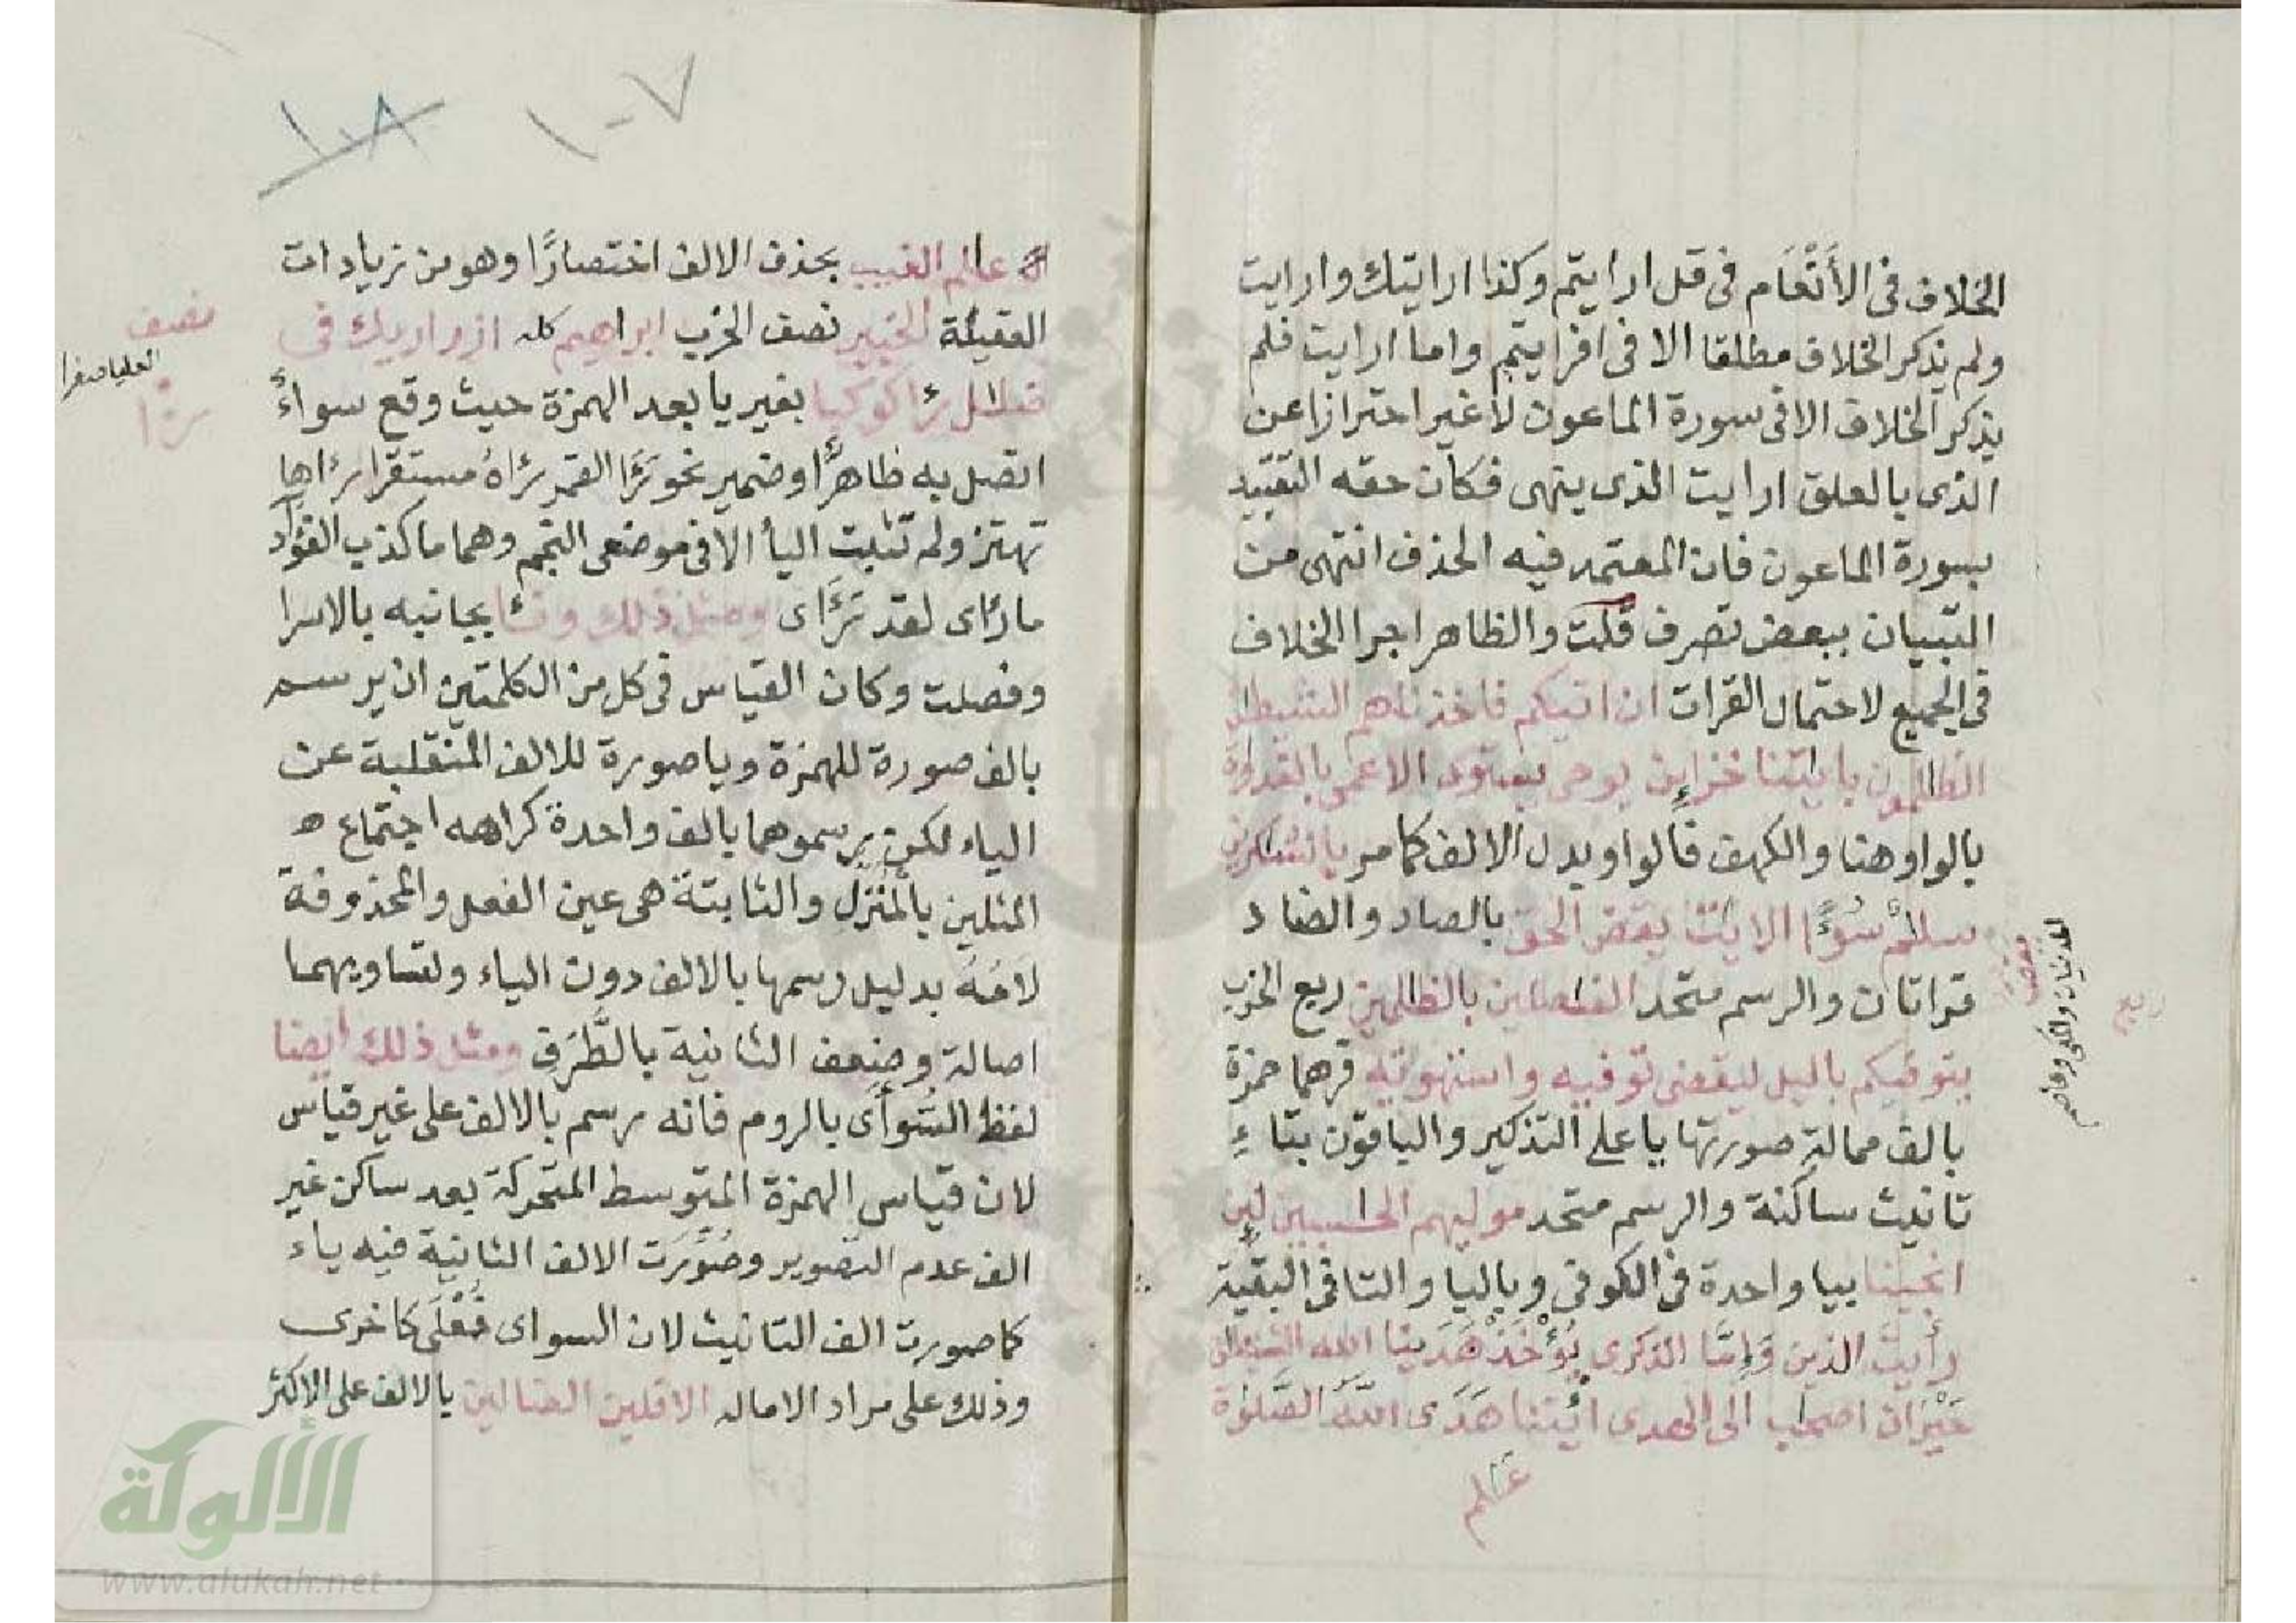 الخلاف فى الأَنْعَام فى قل ارايتم وكذا ارايتك وارايت
ولم يذكر الخلاف مطلقا الا فى افرايتم واما ارايت فلم
يذكر الخلاف الا فى سورة الماعون لا غير احترازا عن
الذى بالعلق ارايت الذى ينهى فكان حقه التقييد
بسورة الماعون فان المعتمد فيه الحذف انتهى من
التبيان ببعض تصرف قلت والظاهر اجرا الخلاف
فى الجميع لاحتمال القرات ان اتيكم فاخذنهم الشيطن
الظلمون بايتنا خزاين يوحى يستوى الاعمى بالغدوة
بالواو هنا والكهف فالواو بدل الالف كما مر بالشكرين
سلم سُوءًا الايت يقص الحق بالصاد والضاد
قراتان والرسم متحد الفصلين بالظلمين ربع الحزب
يتوفيكم باليل ليقضى توفيه واستهويه قرهما حمزة
بالف ممالة صورتها يا على التذكير والباقون بتاءِ
تانيث ساكنة والرسم متحد موليهم الحسبين لين
انجينا بيا واحدة فى الكوفى وباليا والتا فى البقية
رأيت الذين وَإِمَّا الذكرى يُؤْخَذْ هَدَينا الله الشيطن
حَيْرَان اصحب الى الهدى ائتنا هَدَى اللَّه الصَّلوة
عَلم
ربع
يقص
المدنيان والمكى وعاصم
١٠٧
١٠٨
علم الغيب بحذف الالف اختصارًا وهو من زيادات
العقيلة الخبير نصف الحزب ابراهيم كله ازر اريك فى
ضلل رءا كوكبا بغير يا بعد الهمزة حيث وقع سواءً
اتصل به ظاهرًا او ضمير نحو رَءَا القمر رءاهُ مستقرا رءاها
تهتز ولم تثبت اليأ الا فى موضعى النجم وهما ما كذب الفؤاد
ما رءاى لقد رَءَاى ومثل ذلك ونئا بجانبه بالاسرا
وفصلت وكان القياس فى كل من الكلمتين ان يرسم
بالف صورة للهمزة ويا صورة للالف المنقلبة عن
الياء لكن رسموهما بالف واحدة كراهه اجتماع
المثلين بالمُنَزَّل والثابتة هى عين الفعل والمحذوفة
لَامُهُ بدليل رسمها بالالف دون الياء ولتساويهما
اصالة وضعف الثانية بالطَّرَفِ ومثل ذلك ايضا
لفظ السُّوأَى بالروم فانه رسم بالالف على غير قياس
لان قياس الهمزة المتوسط المتحركة بعد ساكن غير
الف عدم التصوير وصُوِّرَت الالف الثانية فيه ياء
كما صورت الف التانيث لان السواى فُعْلَى كاخرى
وذلك على مراد الامالة الافلين الضالين بالالف على الاكثر
نصف
العليا صغرا
رءا
الألوكة
www.alukah.net